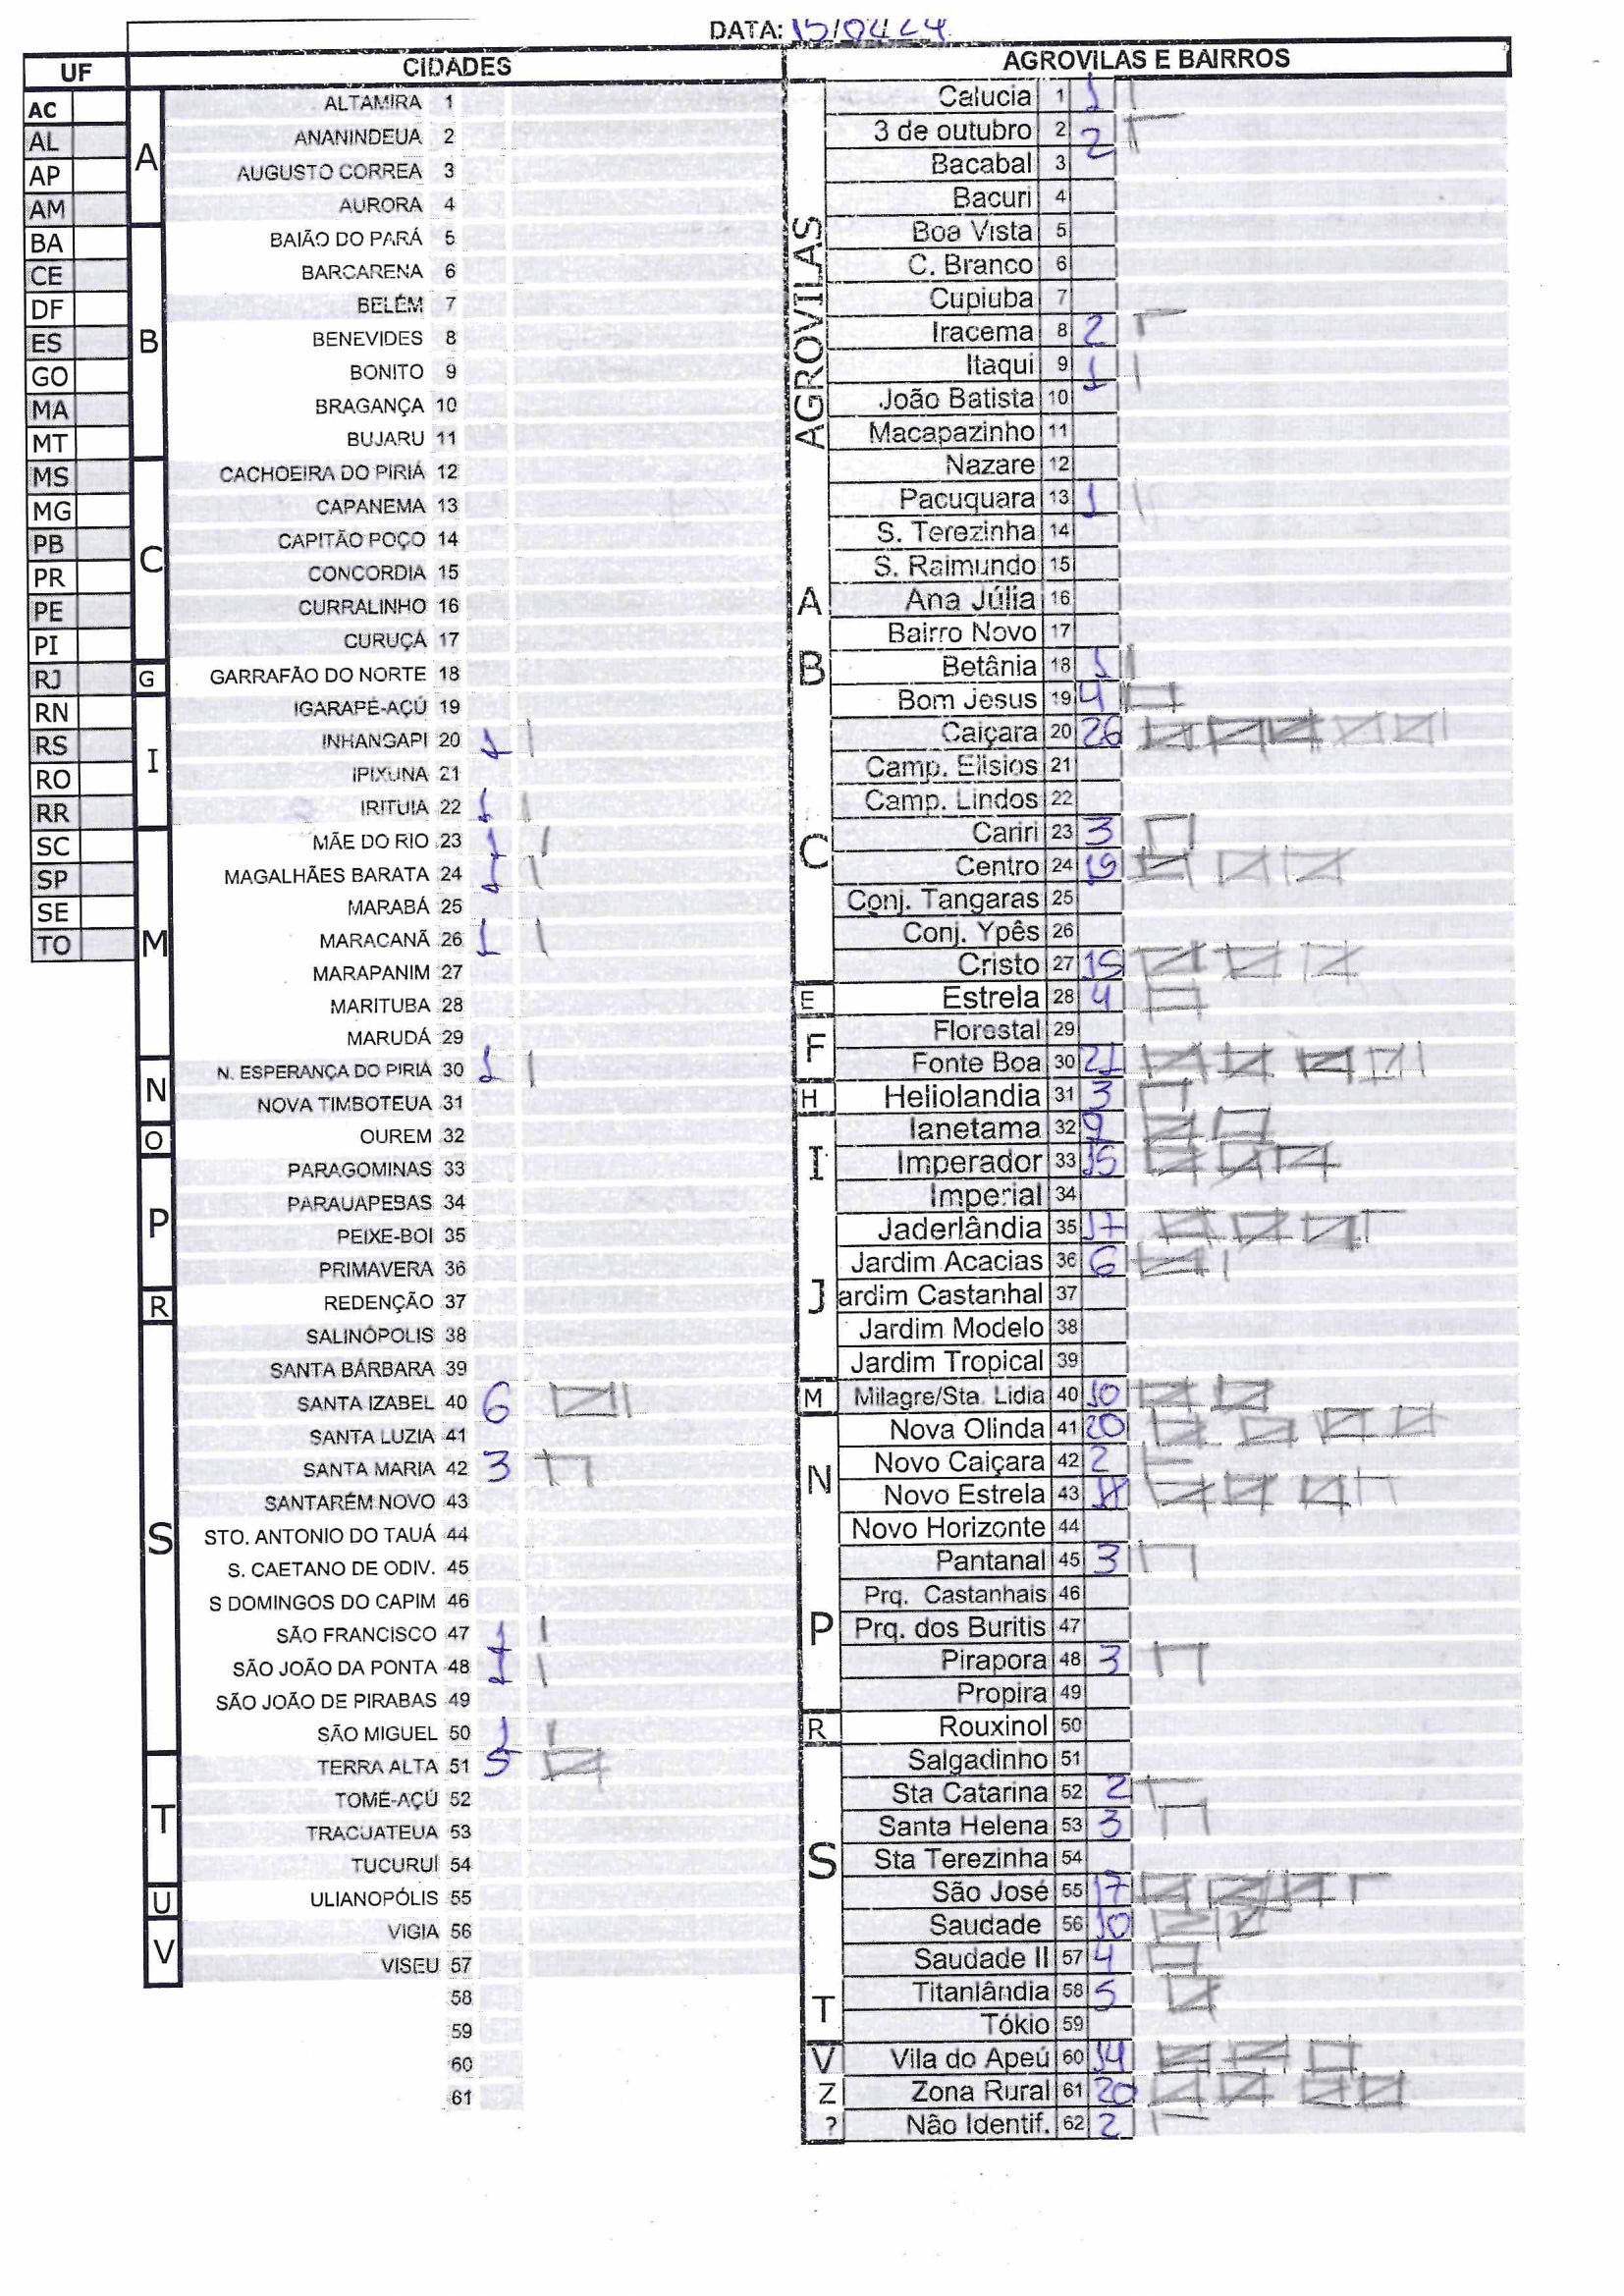 DATA: 15/04/24
UF
AC
AL
AP
AM
BA
CE
DF
ES
GO
MA
MT
MS
MG
PB
PR
PE
PI
RJ
RN
RS
RO
RR
SC
SP
SE
TO
CIDADES
A
ALTAMIRA 1
ANANINDEUA 2
AUGUSTO CORREA 3
AURORA 4
B
BAIÃO DO PARÁ 5
BARCARENA 6
BELÉM 7
BENEVIDES 8
BONITO 9
BRAGANÇA 10
BUJARU 11
C
CACHOEIRA DO PIRIÁ 12
CAPANEMA 13
CAPITÃO POÇO 14
CONCORDIA 15
CURRALINHO 16
CURUÇÁ 17
G
GARRAFÃO DO NORTE 18
I
IGARAPÉ-AÇÚ 19
INHANGAPI 20 1
IPIXUNA 21
IRITUIA 22 1
M
MÃE DO RIO 23 1
MAGALHÃES BARATA 24 1
MARABÁ 25
MARACANÃ 26 1
MARAPANIM 27
MARITUBA 28
MARUDÁ 29
N
N. ESPERANÇA DO PIRIÁ 30 1
NOVA TIMBOTEUA 31
O
OUREM 32
P
PARAGOMINAS 33
PARAUAPEBAS 34
PEIXE-BOI 35
PRIMAVERA 36
R
REDENÇÃO 37
S
SALINÓPOLIS 38
SANTA BÁRBARA 39
SANTA IZABEL 40 6
SANTA LUZIA 41
SANTA MARIA 42 3
SANTARÉM NOVO 43
STO. ANTONIO DO TAUÁ 44
S. CAETANO DE ODIV. 45
S DOMINGOS DO CAPIM 46
SÃO FRANCISCO 47 1
SÃO JOÃO DA PONTA 48 1
SÃO JOÃO DE PIRABAS 49
SÃO MIGUEL 50 1
T
TERRA ALTA 51 5
TOMÉ-AÇÚ 52
TRACUATEUA 53
TUCURUÍ 54
U
ULIANOPÓLIS 55
V
VIGIA 56
VISEU 57
58
59
60
61
AGROVILAS E BAIRROS
AGROVILAS
Calucia 1 1
3 de outubro 2 2
Bacabal 3
Bacuri 4
Boa Vista 5
C. Branco 6
Cupiuba 7
Iracema 8 2
Itaqui 9 1
João Batista 10
Macapazinho 11
Nazare 12
Pacuquara 13 1
S. Terezinha 14
S. Raimundo 15
A
Ana Júlia 16
B
Bairro Novo 17
Betânia 18 1
Bom Jesus 19 4
C
Caiçara 20 26
Camp. Elisios 21
Camp. Lindos 22
Cariri 23 3
Centro 24 19
Conj. Tangaras 25
Conj. Ypês 26
Cristo 27 15
E
Estrela 28 4
F
Florestal 29
Fonte Boa 30 21
H
Heliolandia 31 3
I
Ianetama 32 9
Imperador 33 15
Imperial 34
J
Jaderlândia 35 17
Jardim Acacias 36 6
ardim Castanhal 37
Jardim Modelo 38
Jardim Tropical 39
M
Milagre/Sta. Lidia 40 10
N
Nova Olinda 41 20
Novo Caiçara 42 2
Novo Estrela 43
Novo Horizonte 44
P
Pantanal 45 3
Prq. Castanhais 46
Prq. dos Buritis 47
Pirapora 48 3
Propira 49
R
Rouxinol 50
S
Salgadinho 51
Sta Catarina 52 2
Santa Helena 53 3
Sta Terezinha 54
São José 55 17
Saudade 56 10
Saudade II 57 4
T
Titanlândia 58 5
Tókio 59
V
Vila do Apeú 60 14
Z
Zona Rural 61 20
?
Não Identif. 62 2